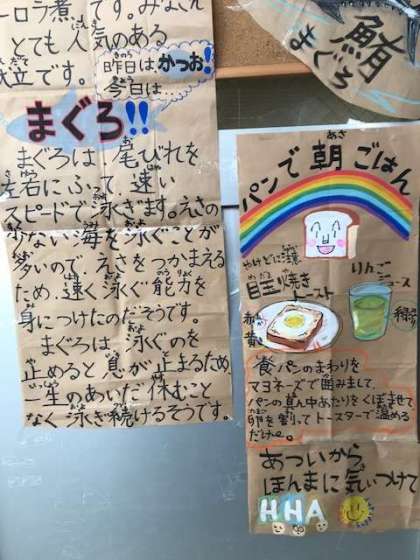 ーロラ煮"です。みなさん
とても人気のある
献立です。
昨日はかつお!
今日は…
まぐろ!!
まぐろは 尾びれを
左右にふって、速い
スピードで泳ぎます。えさの
少ない海を泳ぐことが
多いので、えさをつかまえる
ため、速く泳ぐ能力を
身につけたのだそうです。
まぐろは、泳ぐのを
止めると息が止まるため
一生のあいだ休むこと
なく泳ぎ続けるそうです。
鮪
まぐろ
パンで朝ごはん
やけどに注意
目玉焼き
トースト
りんご
ジュース
赤
黄
緑
食パンのまわりを
マヨネーズで囲みまして、
パンの真ん中あたりをくぼませて
卵を割ってトースターで温める
だけ〜。
あついから
ほんまに気ぃつけて
HHA